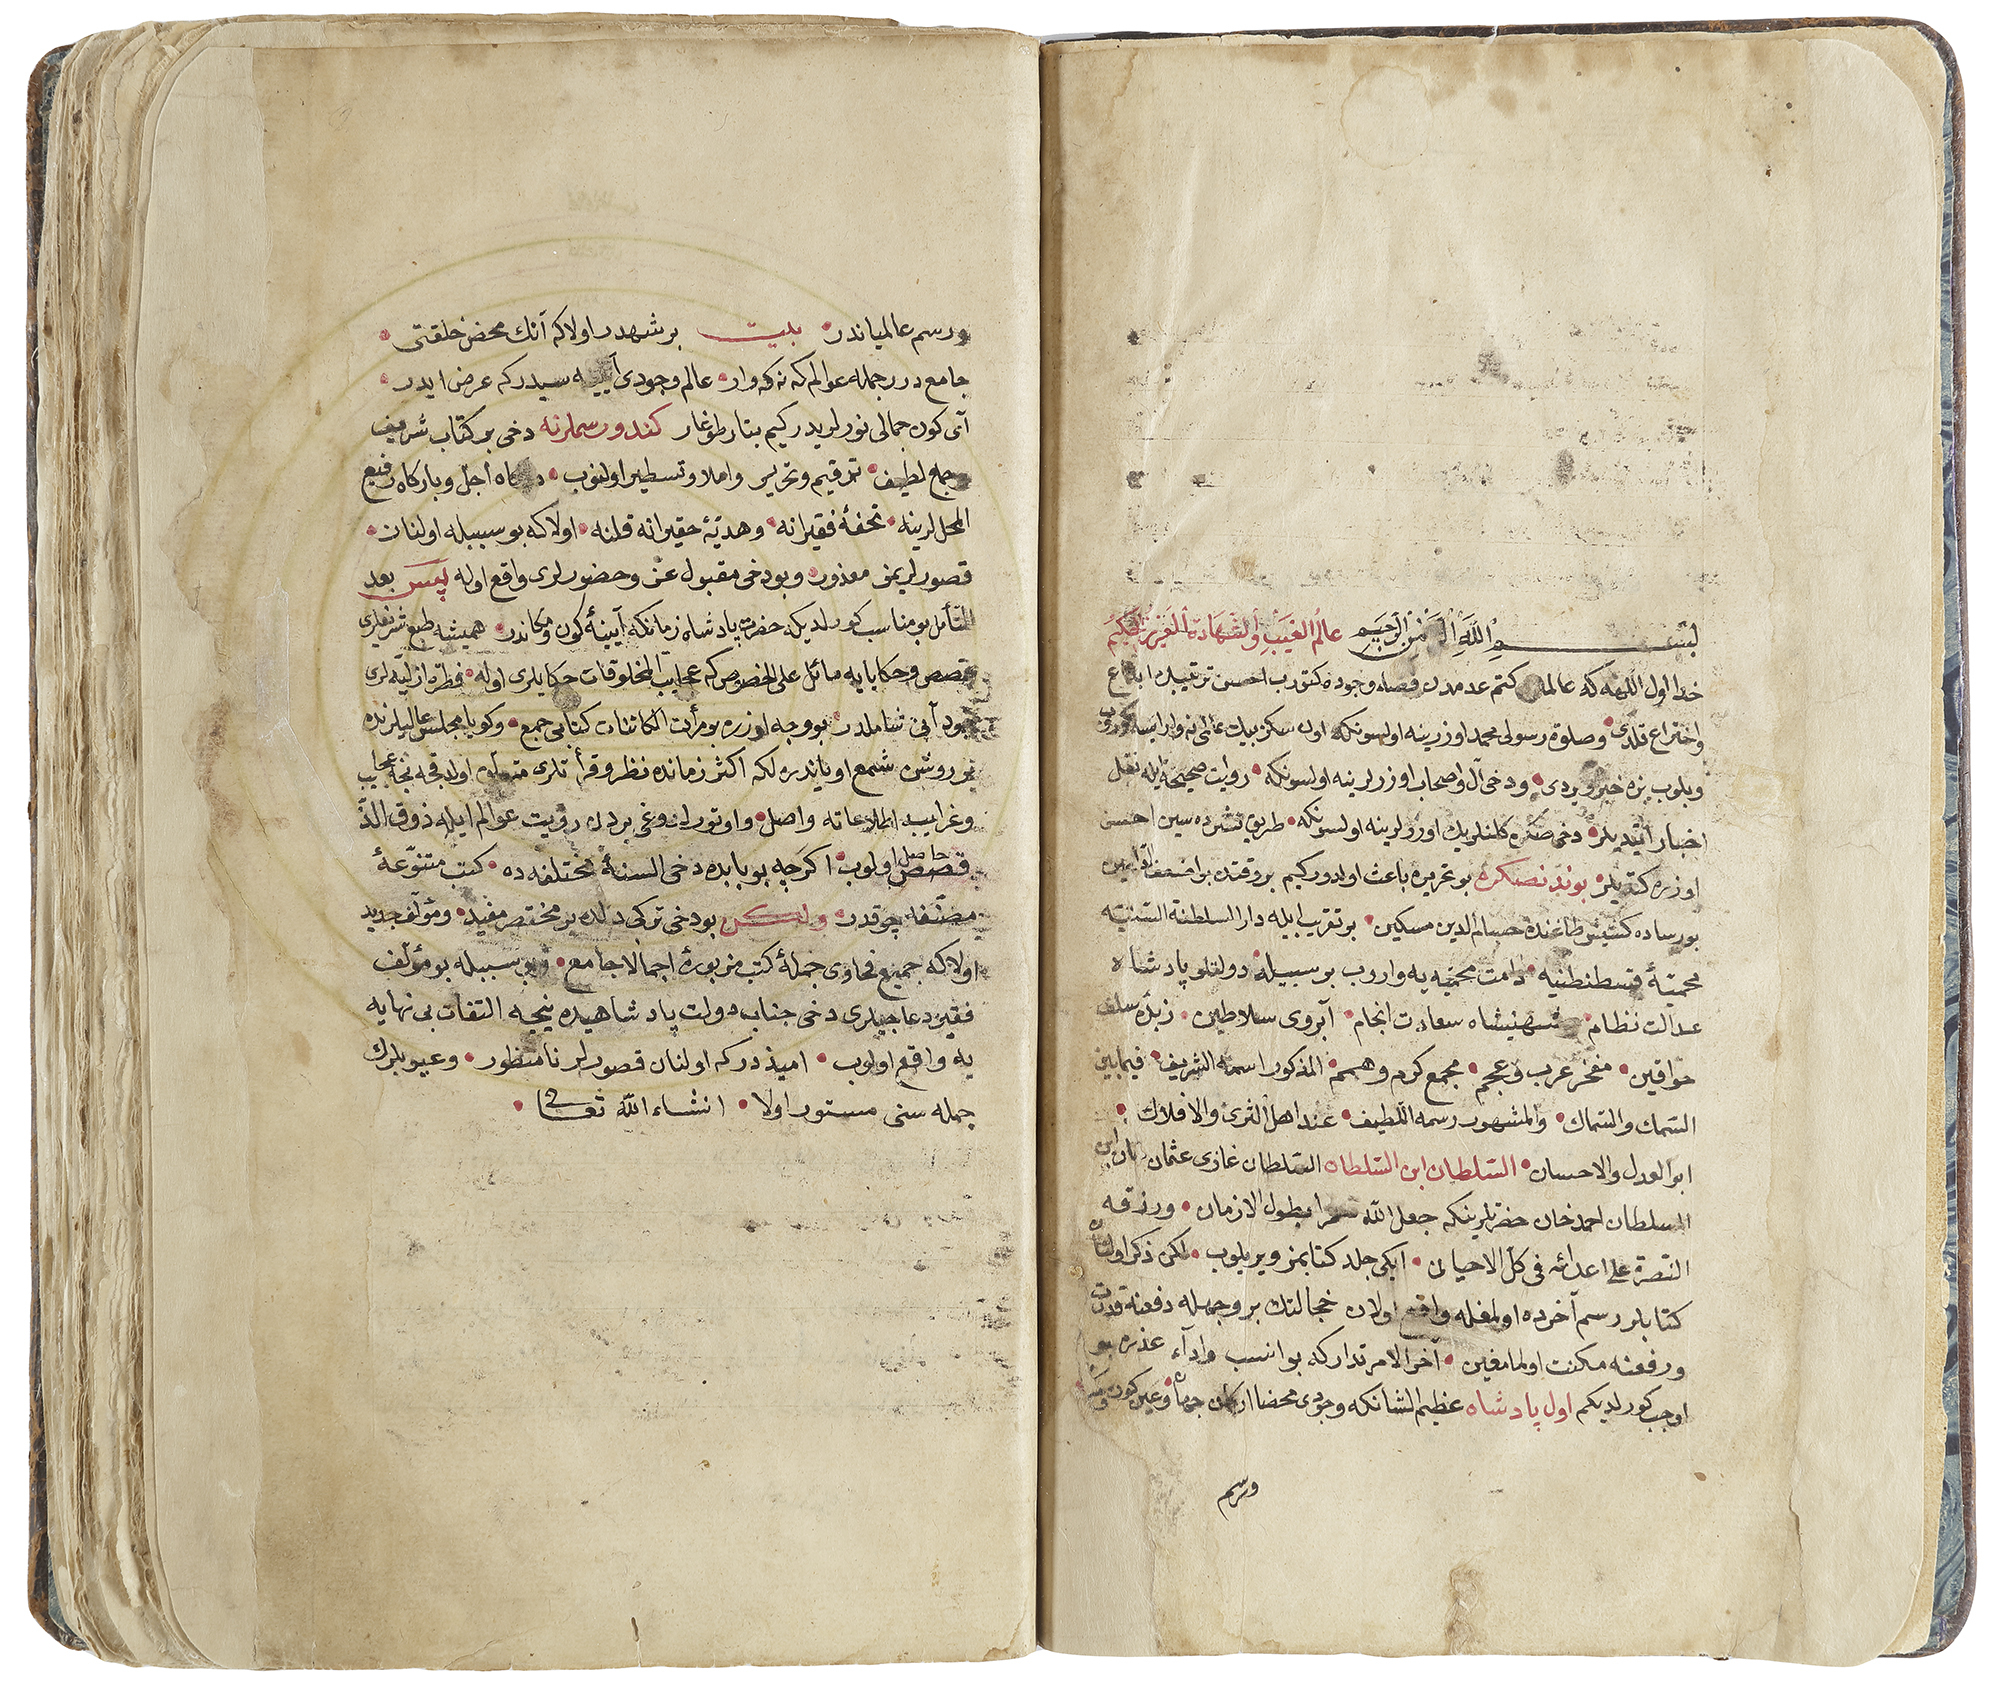 بسم الله الرحمن الرحيم عالم الغيب والشهادة العزيز الحكيم
اول اللهه كه عالمى كتم عدمدن وجوده كتورب احسن ترتيبله ابداع
واختراع قلدى وصلوة رسولى محمد اوزرينه اولسونكه اون سكز بيك عالمى نه وار ايسه كورب
وبلوب بزه خبر ويردى ودخى آل واصحاب اوزرلرينه اولسونكه روايت صحيحه ايله نقل
اخبار ايتديلر دخى صكره كلنلريك اوزرلرينه اولسونكه طريق احسن
اوزره كتديلر بوندنصكره بو تحريره باعث اولدوركيم بر وقتده بو اضعف
حسام الدين مسكين بو تقريب ايله دار السلطنة السنيه
محميۀ قسطنطنيه دامت محميه يه واروب بر سببله دولتلو پادشاه
عدالت نظام شهنشاه سعادت انجام آبروى سلاطين زبدۀ سلف
خواقين مفخر عرب وعجم مجمع كرم وهمم المذكور اسمه الشريف فيمابين
السمك والسماك والمشهور رسمه اللطيف عند اهل الثرى والافلاك
ابو العدل والاحسان السلطان ابن السلطان السلطان غازى عثمان خان ابن
السلطان احمد خان حضرتلرينكه جعل الله بطول الازمان ورزقه
النصرة على اعدائه فى كل الاحيان ايكى جلد كتابمز ويريلوب لكن ذكر اولنان
كتابلر رسم آخرده اولمغله واقع اولان خجالتك بر وجهله دفعنه قدرت
ورفعنه مكنت اولمامغين آخر الامر تداركه بو انسب وادآء عذره بو
اوجب كورلديكم اول پادشاه عظيم الشانكه وجودى محضا اركان جهان وعين كون
ورسم
ورسم عالمياندر بيت بر شهدر اولاكه آنك محض خلقتى
جامعدرر جمله عوالم كه نه كه وار عالم وجودى آيينه سيدركم عرض ايدر
آى كون جمالى نورلريدركيم بتار طوغار كندو رسملرنه دخى بر كتاب شريف
وجمع لطيف ترقيم وتحرير واملا وتسطير اولنوب دركاه اجل وباركاه رفيع
المحللرينه تحفۀ فقيرانه وهديۀ حقيرانه قلنه اولاكه بو سببله اولنان
قصورلريمز معذور وبو دخى مقبول عز وحضورلرى واقع اوله پس بعد
التأمل بو مناسب كورلديكه حضرت پادشاه زمانكه آيينۀ كون ومكاندر هميشه طبع شريفلرى
قصص وحكايايه مائل على الخصوص كه عجايب المخلوقات حكايلرى اوله فطرت ازليه لرى
شاملدر بو وجه اوزره بو مرآت الكائنات كتابى جمع وكويا مجلس عاليلرنده
بر روشن شمع اوياندره لكه اكثر زمانده نظر وقرأتلرى متعلق اولدقجه نجه عجايب
وغرايب اطلاعاته واصل واوتورلدوغى يردن رؤيت عوالم ايله ذوق الذ
قصص حاصل اولوب اكرچه بو بابده دخى السنۀ مختلفه ده كتب متنوعۀ
مصنفه چوقدر ولكن بو دخى تركى دلده بر مختصر مفيد ومؤلف جديد
اولاكه جميع فحاوى جملۀ كتب مزبورۀ اجمالا جامع وبو سببله بو مؤلف
فقير دعاجيلرى دخى جناب دولت پادشاهيده نيجه التفات بى نهايه
يه واقع اولوب اميددركه اولنان قصورلر نا منظور وعيوبلرك
جمله سنى مستور اولا انشاء الله تعالى